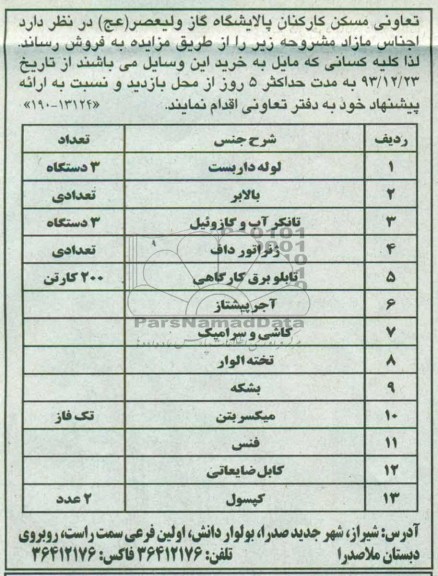 تعاونی مسکن کارکنان پالایشگاه گاز ولیعصر(عج) در نظر دارد
اجناس مازاد مشروحه زیر را از طریق مزایده به فروش رساند.
لذا کلیه کسانی که مایل به خرید این وسایل می باشند از تاریخ
۹۳/۱۲/۲۳ به مدت حداکثر ۵ روز از محل بازدید و نسبت به ارائه
پیشنهاد خود به دفتر تعاونی اقدام نمایند. «۱۳۱۲۴-۱۹۰»
ردیف شرح جنس تعداد
۱ لوله داربست ۳ دستگاه
۲ بالابر تعدادی
۳ تانکر آب و گازوئیل ۳ دستگاه
۴ ژنراتور داف تعدادی
۵ تابلو برق کارگاهی ۲۰۰ کارتن
۶ آجر پیشتاز
ParsNamadData
۷ کاشی و سرامیک
۸ تخته الوار
۹ بشکه
۱۰ میکسر بتن تک فاز
۱۱ فنس
۱۲ کابل ضایعاتی
۱۳ کپسول ۲ عدد
آدرس: شیراز، شهر جدید صدرا، بولوار دانش، اولین فرعی سمت راست، روبروی
دبستان ملاصدرا تلفن: ۳۶۴۱۲۱۷۶ فاکس: ۳۶۴۱۲۱۷۶